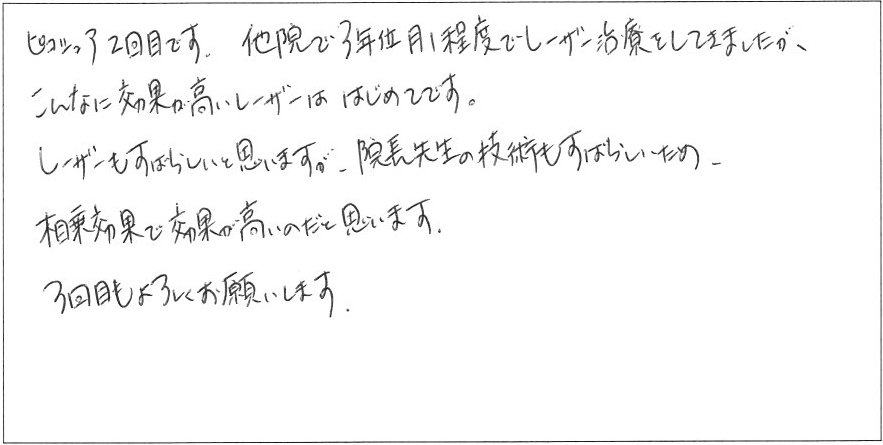 ピコシュア2回目です。他院で3年位月1程度でレーザー治療をしてきましたが、
こんなに効果が高いレーザーははじめてです。
レーザーもすばらしいと思いますが、院長先生の技術もすばらしいため、
相乗効果で効果が高いのだと思います。
3回目もよろしくお願いします。